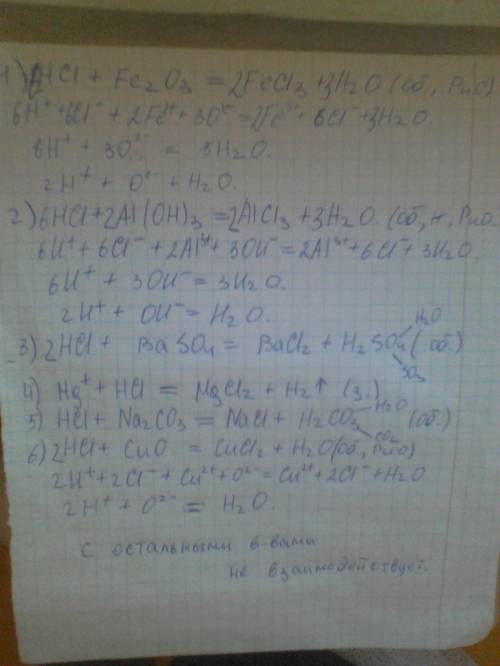 1) 6HCl + Fe2O3 = 2FeCl3 + 3H2O (об, РиО)
6H⁺ + 6Cl⁻ + 2Fe³⁺ + 3O²⁻ = 2Fe³⁺ + 6Cl⁻ + 3H2O.
6H⁺ + 3O²⁻ = 3H2O.
2H⁺ + O²⁻ + H2O.
2) 6HCl + 2Al(OH)3 = 2AlCl3 + 3H2O. (об, н, РиО
6H⁺ + 6Cl⁻ + 2Al³⁺ + 3OH⁻ = 2Al³⁺ + 6Cl⁻ + 3H2O.
6H⁺ + 3OH⁻ = 3H2O.
2H⁺ + OH⁻ = H2O.
H2O
3) 2HCl + BaSO4 = BaCl2 + H2SO4 (об.)
SO3
4) Mg⁺ + HCl = MgCl2 + H2↑ (з.)
5) HCl + Na2CO3 = NaCl + H2CO3 H2O (об.)
CO2
6) 2HCl + CuO = CuCl2 + H2O (об, РиО)
2H⁺ + 2Cl⁻ + Cu²⁺ + O²⁻ = Cu²⁺ + 2Cl⁻ + H2O
2H⁺ + O²⁻ = H2O.
с остальными в-вами
не взаимодействует.